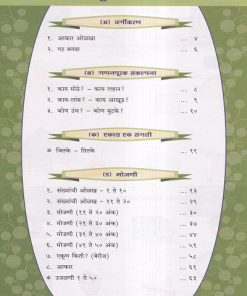 (अ) वर्गीकरण
१. आकार ओळखा ... ४
२. गट बनवा ... ६
(ब) गणनपूरक संकल्पना
१. काय मोठे? - काय लहान? ... ८
२. काय लांब? - काय आखूड? ... ९
३. कोण उंच? - कोण बुटके? ... १०
(क) एकास एक संगती
जितके - तितके ... ११
(ड) मोजणी
१. संख्यांची ओळख - १ ते १० ... १३
२. संख्यांची ओळख - ११ ते २० ... २९
३. मोजणी (२१ ते ३० अंक) ... ४०
४. मोजणी (३१ ते ४० अंक) ... ४५
५. मोजणी (४१ ते ५० अंक) ... ५०
६. मोजणी (१ ते ५० अंक) ... ५५
७. एकूण किती? (बेरीज) ... ५७
८. आकार ... ६१
उजळणी १ ते ५० ... ६३